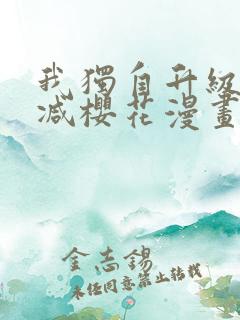 我獨自升級
減櫻花漫畫
金志錫
未经同意禁止转载